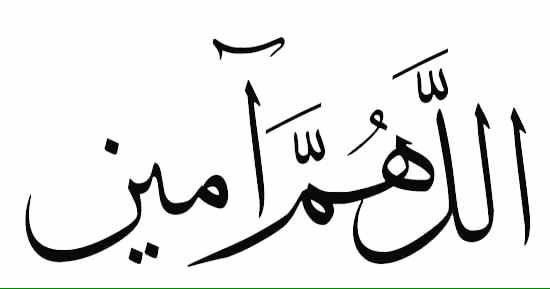 اللَّهُمَّ آمين